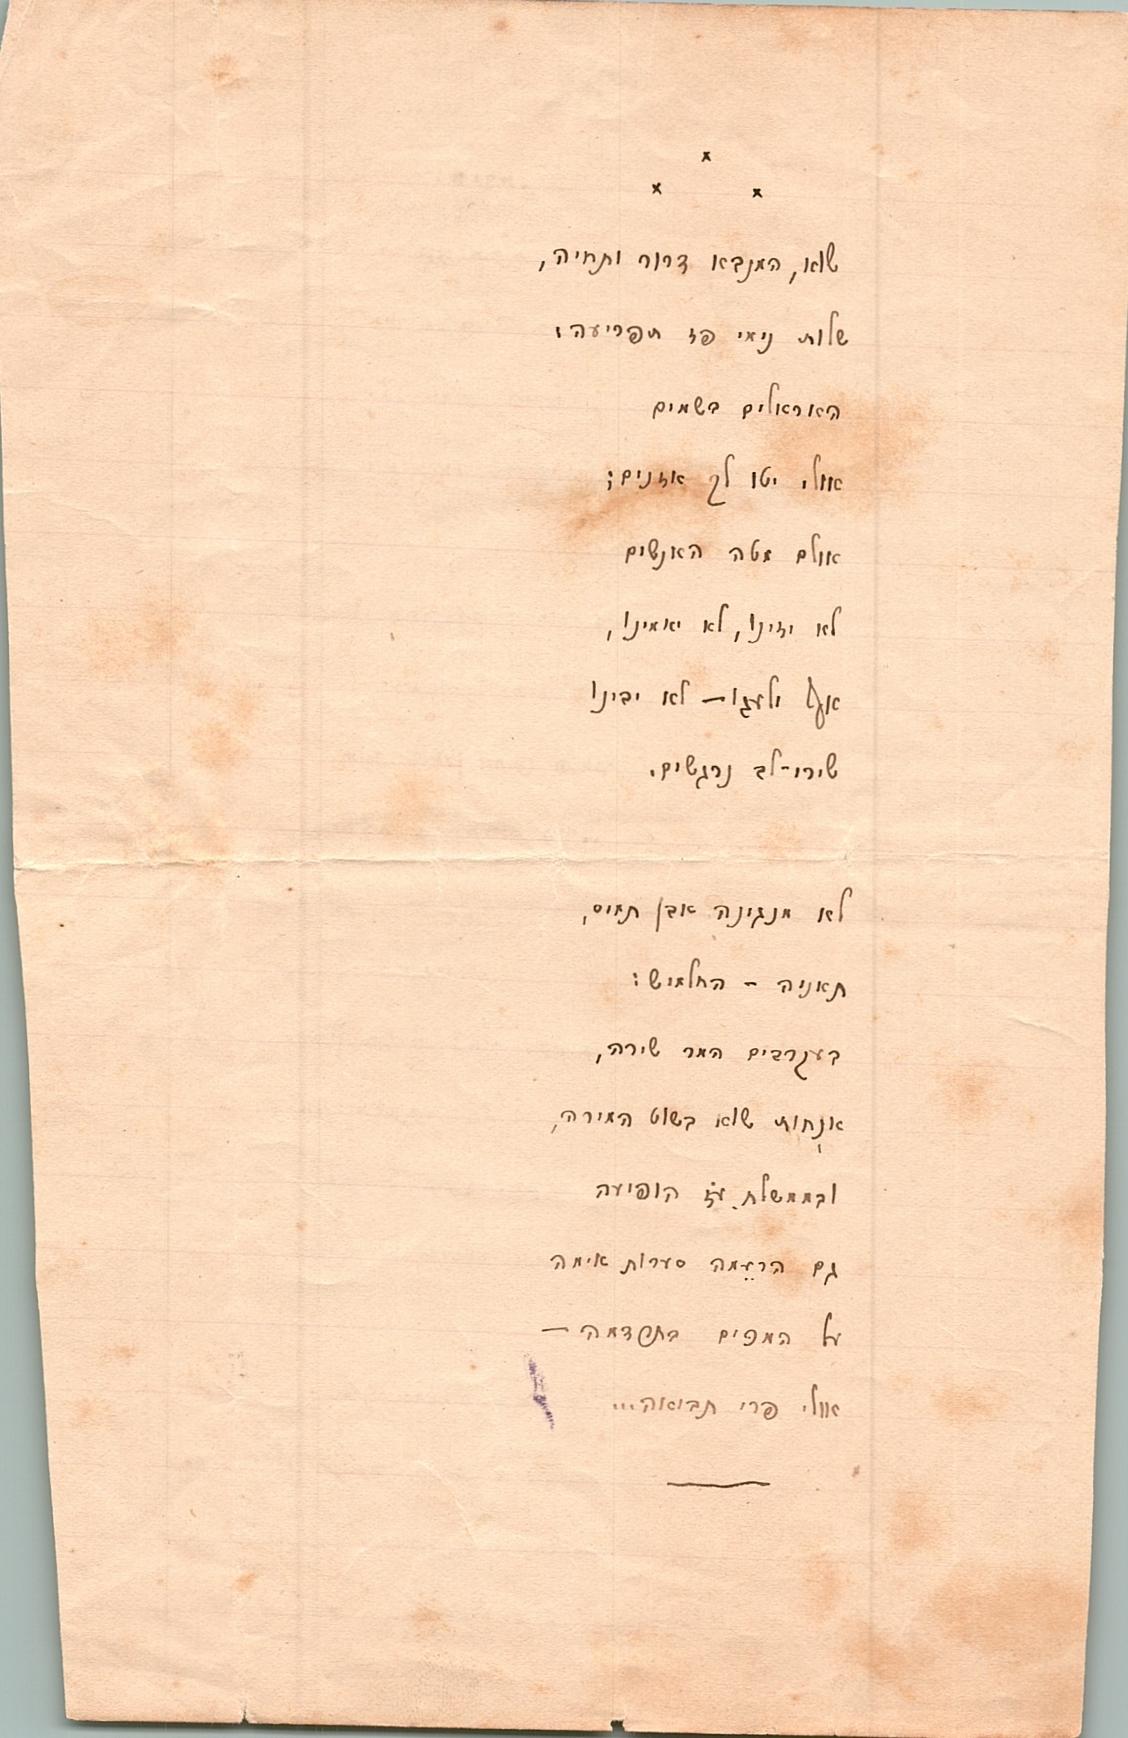 * * *
שוא, המנבא דרור ותחיה,
שלות נימי פז תפריעה:
האראלים בשמים
אולי יטו לך אזנים;
אולם מטה האנשים
לא יזינו, לא יאמינו,
אף ילעגו — לא יבינו
שירי-לב נרגשים.
לא מנגינה אבן תמיס,
תאניה – החלמיש:
בעקרבים המר שירה,
אנחות שוא בשוט המירה,
ובממשלת עז הופיעה
גם הרעמה סערות אימה
על המפים בתפדמה —
אולי פרי תבואה...